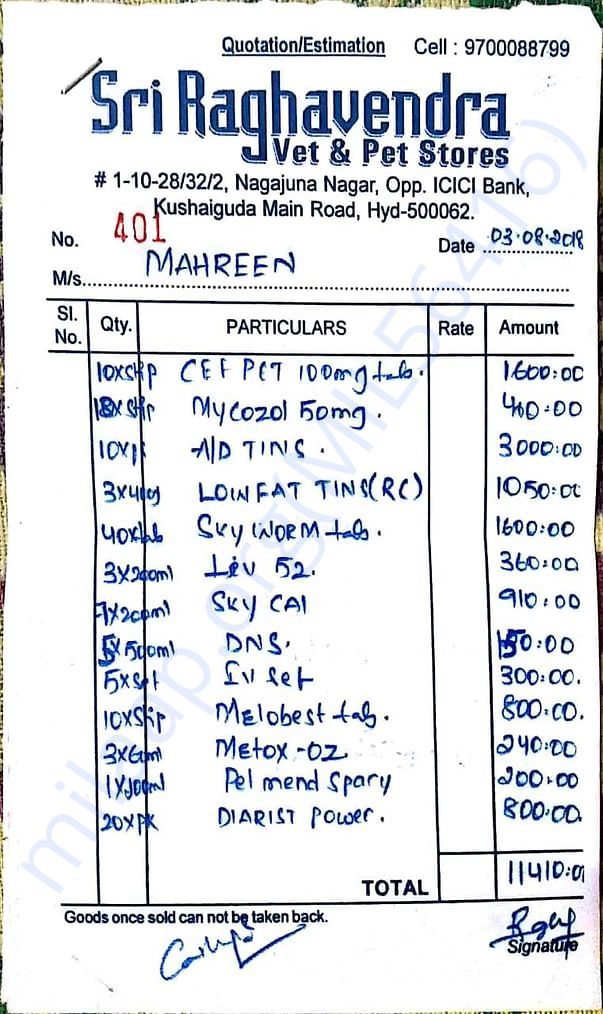 Quotation/Estimation Cell : 9700088799
Sri Raghavendra
Vet & Pet Stores
# 1-10-28/32/2, Nagajuna Nagar, Opp. ICICI Bank,
Kushaiguda Main Road, Hyd-500062.
No. 401 Date 03.08.2018
M/s. MAHREEN
Sl. No. Qty. PARTICULARS Rate Amount
10xstrip CEF PET 100mg tab. 1600:00
Mycozol 50mg. 400:00
A/D TINS. 3000:00
LOW FAT TINS(RC) 1050:00
40xtab Sky WORM tab. 1600:00
3x200ml Liv 52. 360:00
7x200ml SKY CAL 910:00
5x500ml DNS. 150:00
5xset IV set 300:00.
10xstrip Melobest tab. 800:00.
3x6ml Metox-OZ 240:00
1x100ml Pel mend Spary 200:00
20xPK DIARIST Power. 800:00.
TOTAL 11410:00
Goods once sold can not be taken back.
Signature
milaap.org(MIL56416)